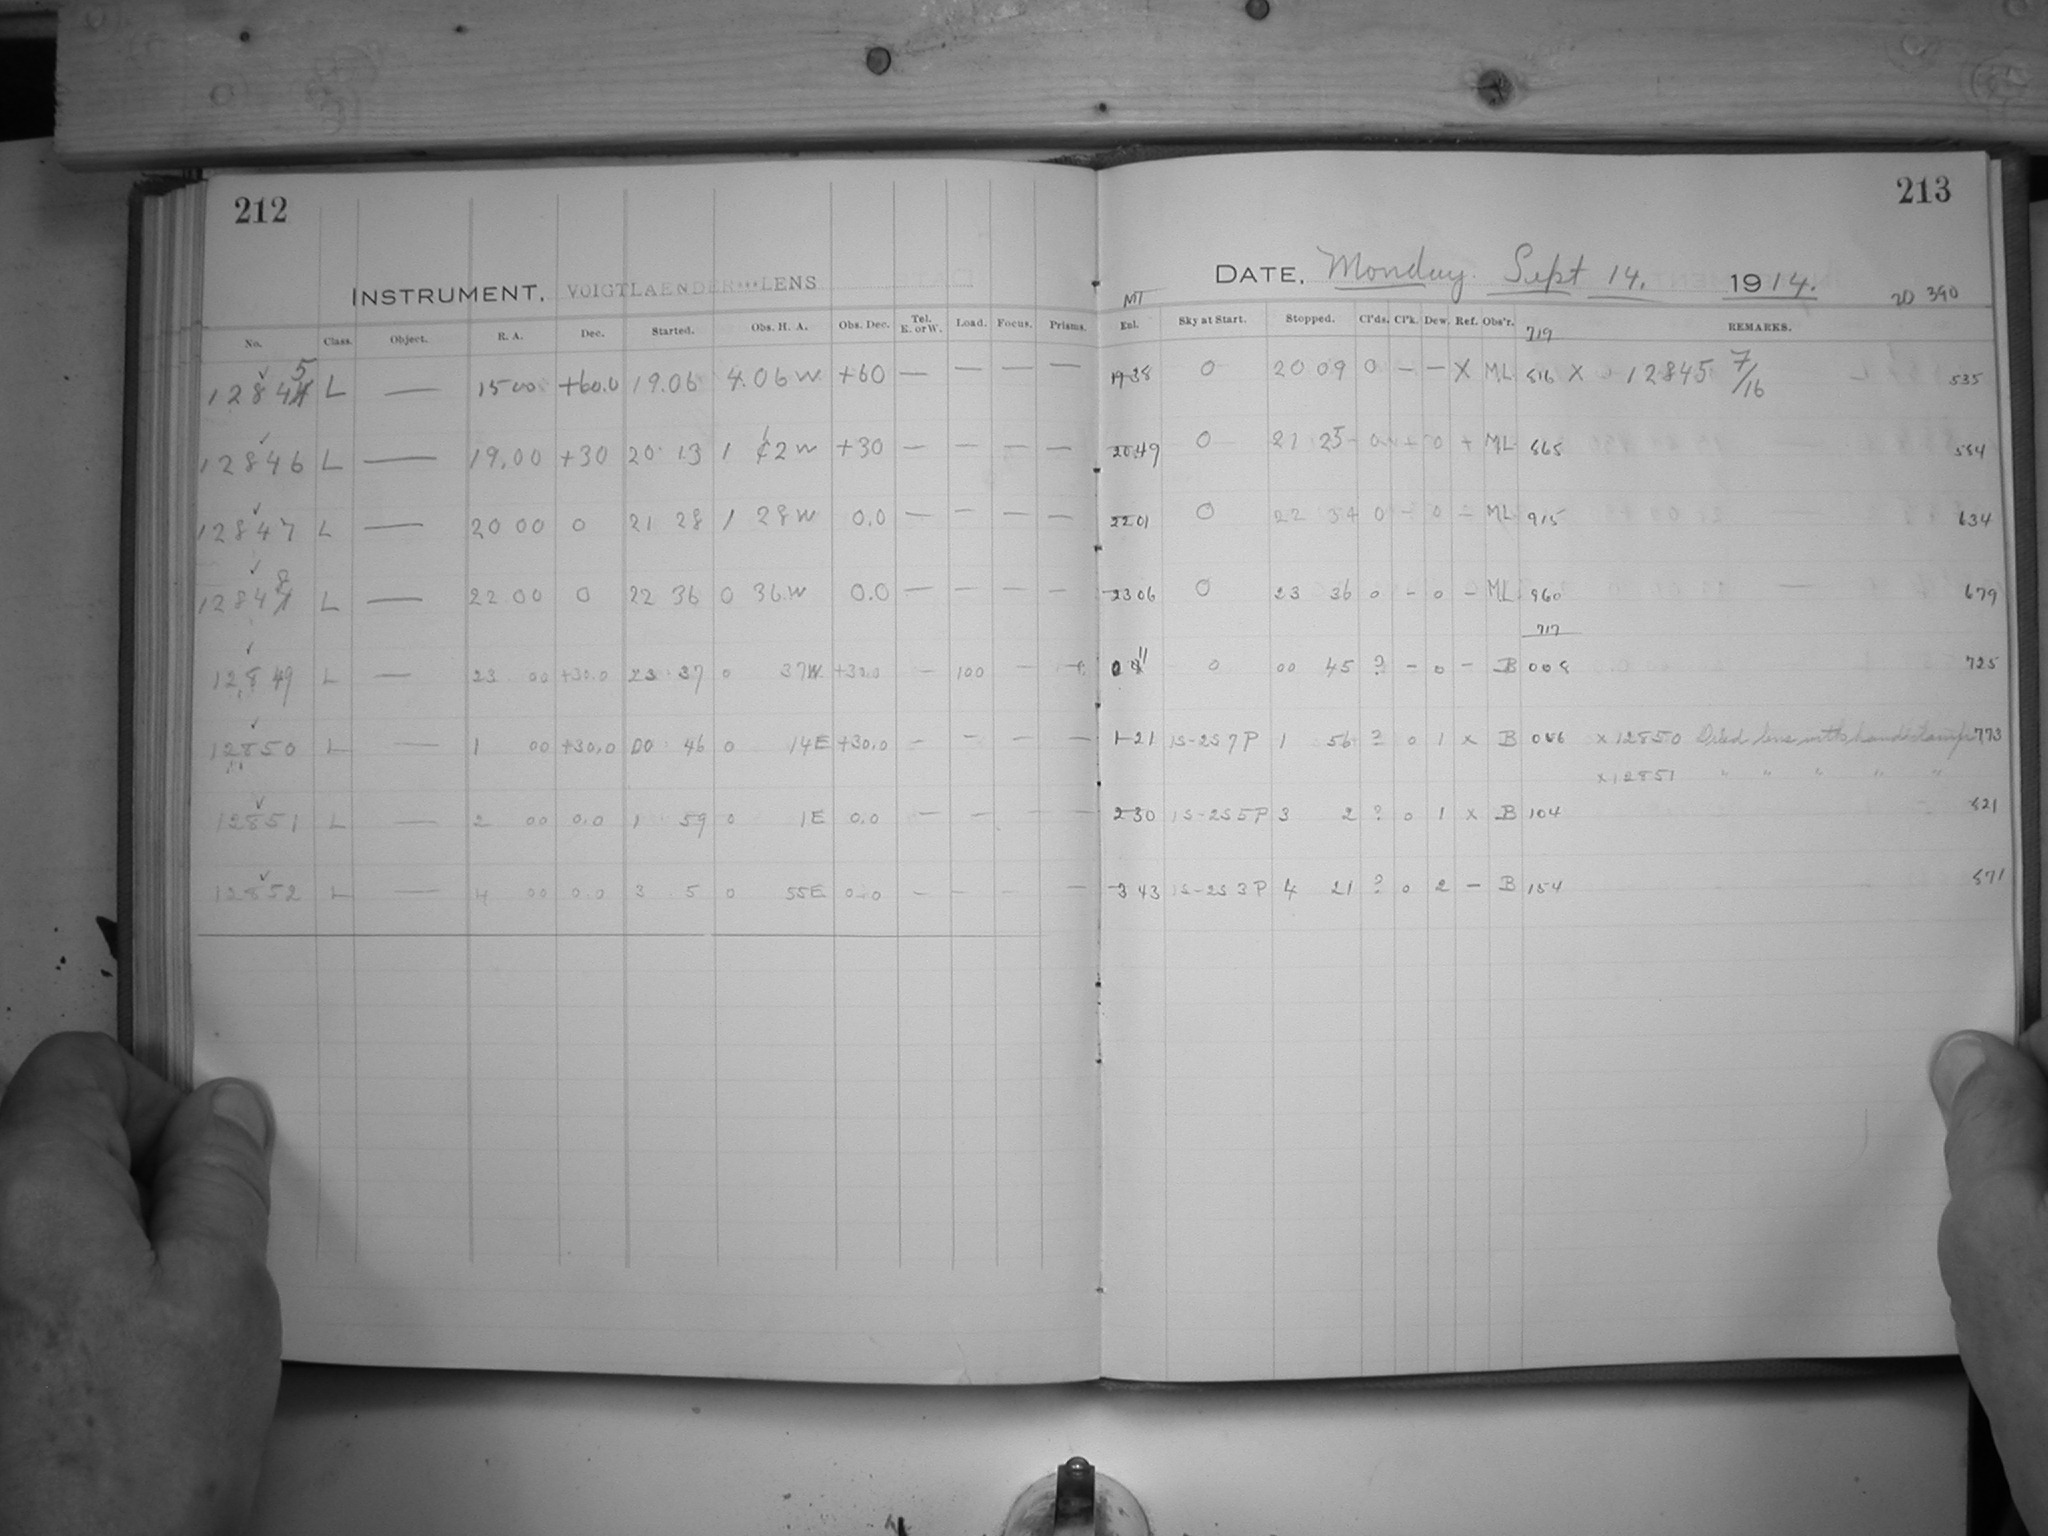 212
INSTRUMENT. VOIGTLAENDER LENS
No. Class. Object. R. A. Dec. Started. Obs. H. A. Obs. Dec. Tel. E. or W. Load. Focus. Prisms.
12845 L — 15 00 +60.0 19.06 4.06 W +60 — — — —
12846 L — 19.00 +30 20 13 1 12 W +30 — — — —
12847 L — 20 00 0 21 28 1 28 W 0.0 — — — —
12848 L — 22 00 0 22 36 0 36 W 0.0 — — — —
12849 L — 23 00 +30.0 23 37 0 37 W +30.0 — 100 —
12850 L — 1 00 +30.0 00 46 0 14 E +30.0 — — — —
12851 L — 2 00 0.0 1 59 0 1 E 0.0 — — — —
12852 L — 4 00 0.0 3 5 0 55 E 0.0 — — — —
213
DATE. Monday. Sept 14. 1914.
MT 20 390
Enl. Sky at Start. Stopped. Cl'ds. Cl'k. Dew. Ref. Obs'r. 719 REMARKS.
19 38 0 20 09 0 — — X ML 816 X 12845 7/16 535
20 49 0 21 25 0 0 + ML 865 584
22 01 0 22 34 0 - 0 - ML 915 634
23 06 0 23 36 0 - 0 - ML 960 679
717
0 11 0 00 45 ? - 0 - B 008 725
1 21 1S-2S 7P 1 56 ? 0 1 x B 056 x 12850 Dried lens with handstamp 773
x 12851 " " " " "
2 30 1S-2S 5P 3 2 ? 0 1 x B 104 821
3 43 1S-2S 3P 4 21 ? 0 2 - B 154 871